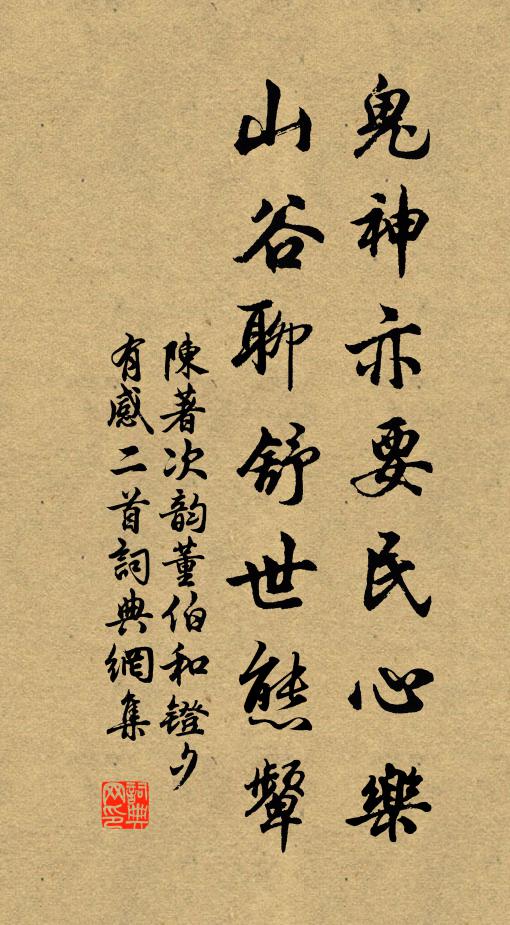 鬼神亦要民心樂
山谷聊舒世態顰
陳著次韵董伯和鐙夕
有感二首詞典網集
詞典
网印